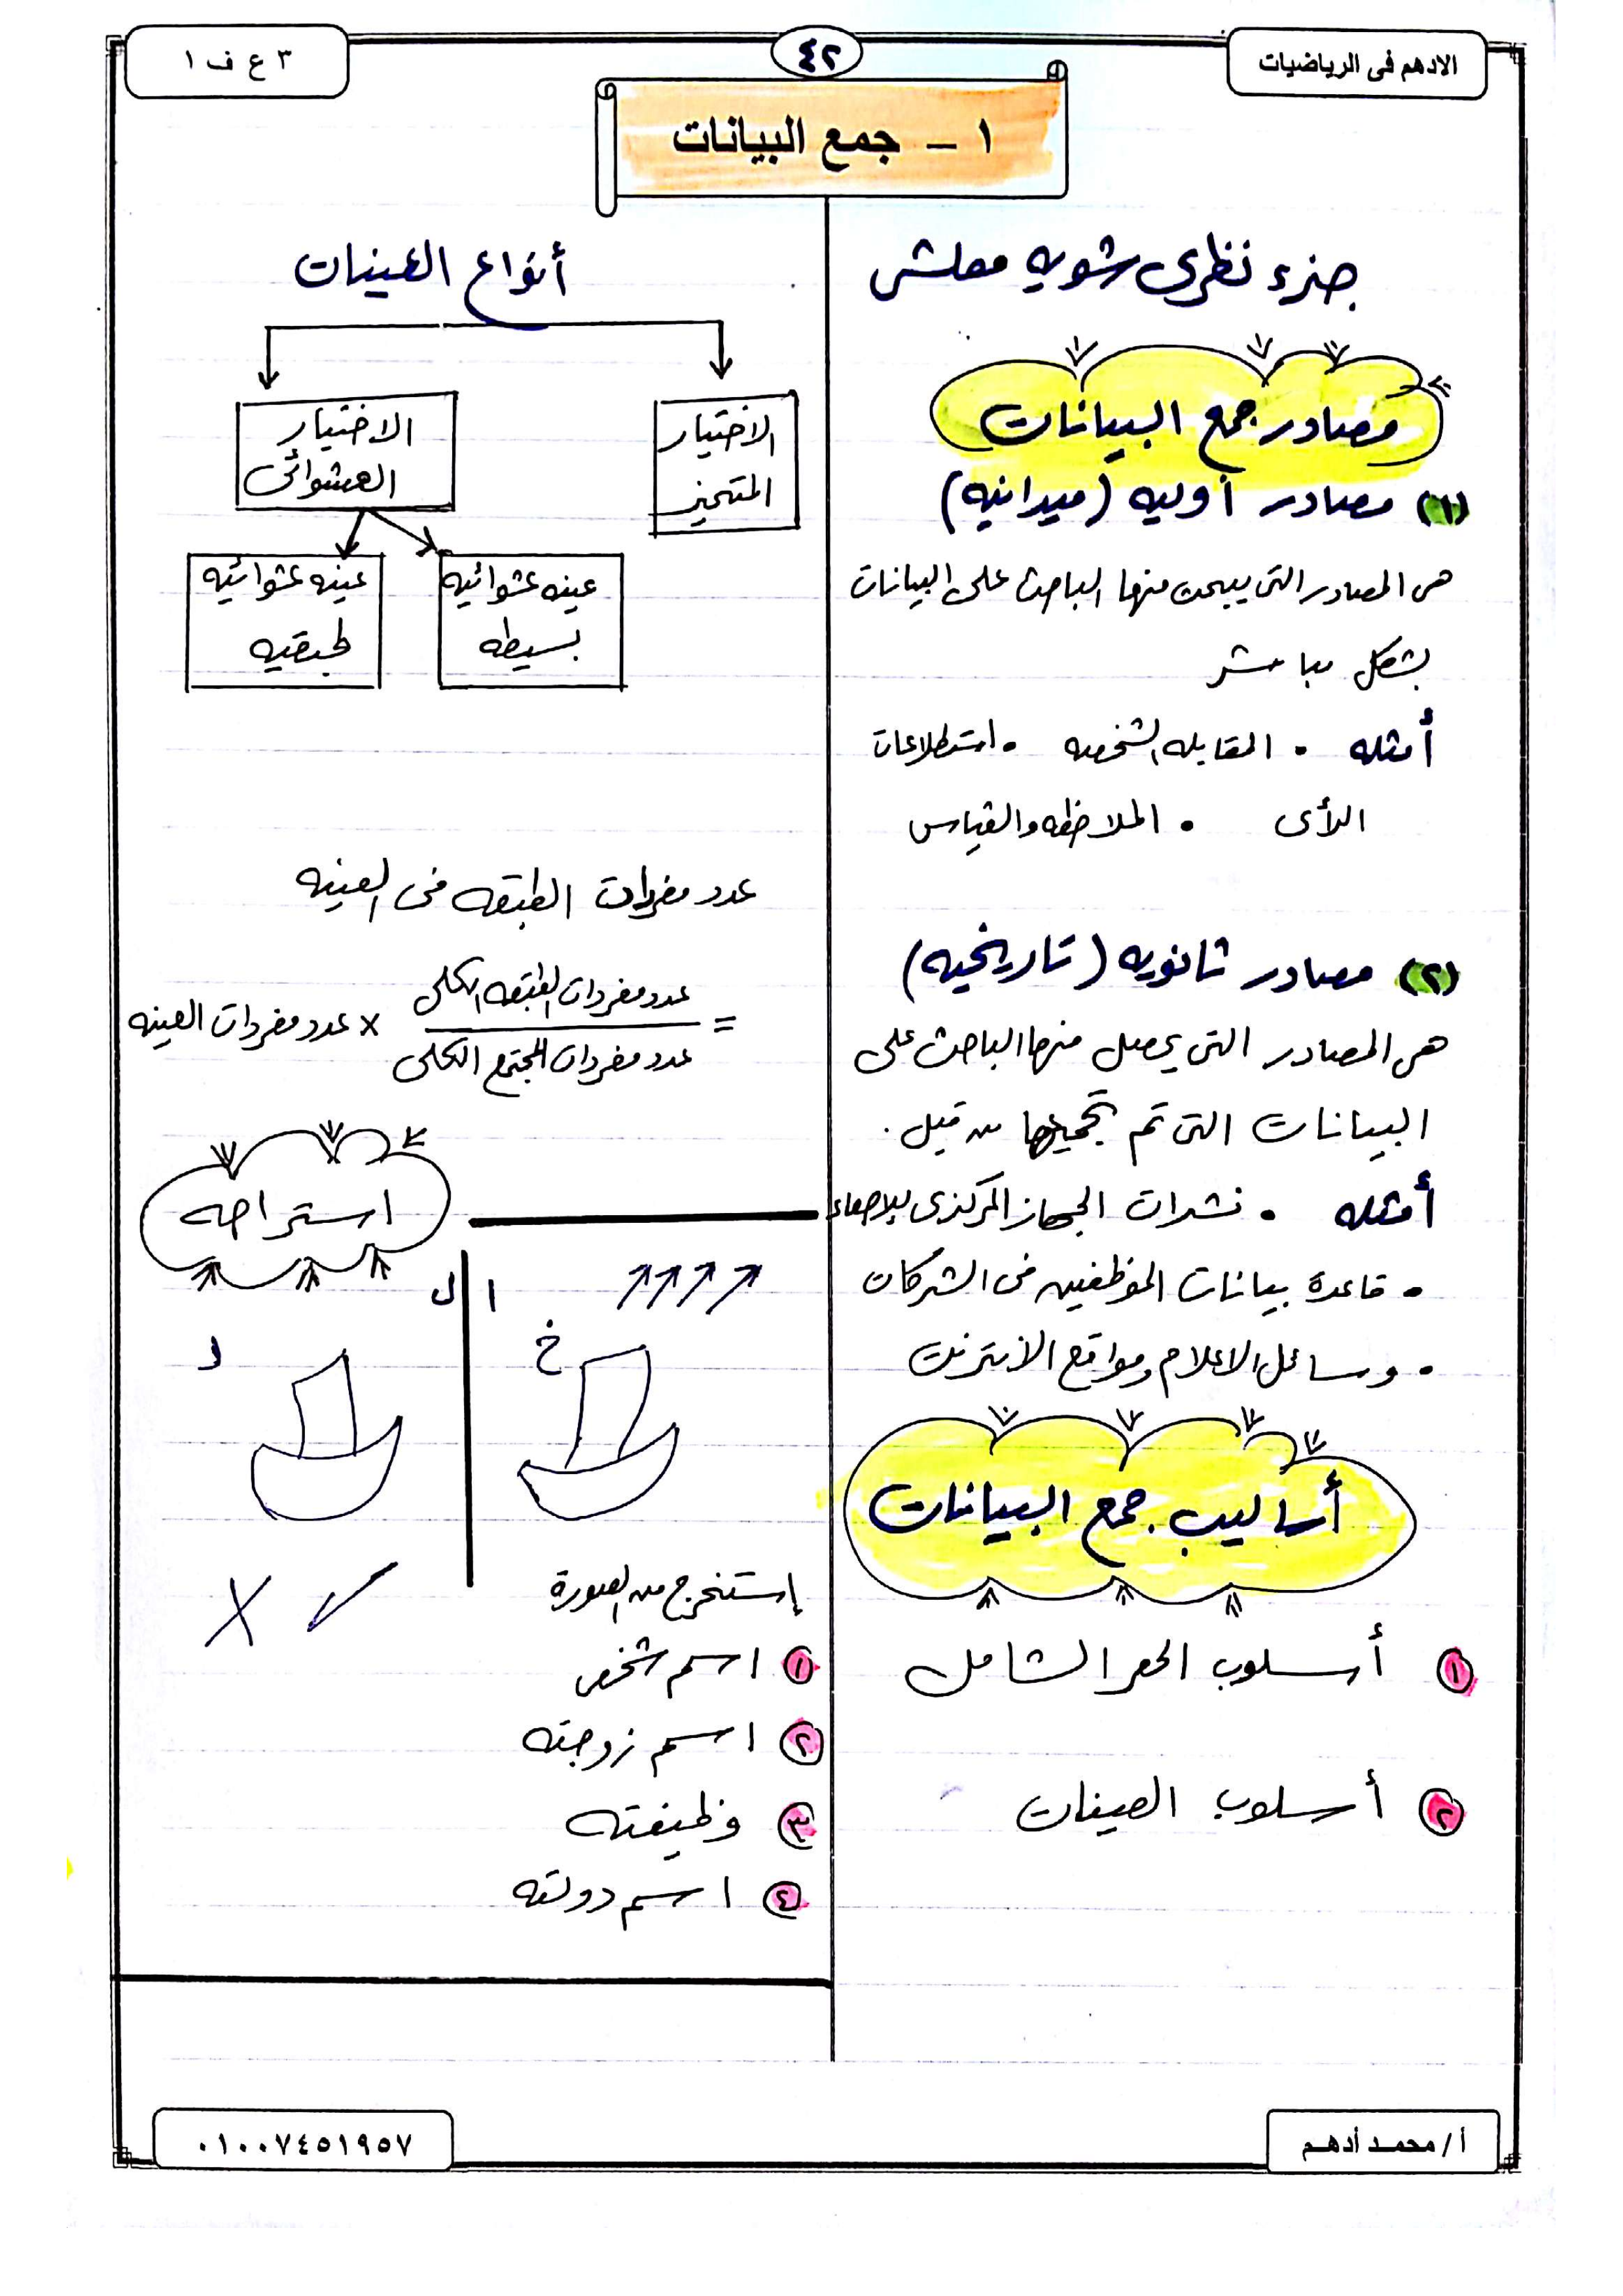 الادهم فى الرياضيات
٤٢
٣ ع ف ١
١ - جمع البيانات
جزء نظرى شويه معلش
مصادر جمع البيانات
(١) مصادر أوليه (ميدانيه)
هى المصادر التى يبحث منها الباحث على البيانات
بشكل مباشر
أمثله • المقابله الشخصيه • استطلاعات
الرأى • الملاحظه والقياس
(٢) مصادر ثانويه (تاريخيه)
هى المصادر التى يحصل منها الباحث على
البيانات التى تم تجميعها من قبل .
أمثله • نشرات الجهاز المركزى للإحصاء
• قاعدة بيانات الموظفين فى الشركات
• وسائل الاعلام ومواقع الانترنت
أساليب جمع البيانات
١ أسلوب الحصر الشامل
٢ أسلوب العينات
أنواع العينات
الاختيار
المتحيز
الاختيار
العشوائى
عينه عشوائيه
بسيطه
عينه عشوائيه
طبقيه
عدد مفردات الطبقه فى العينه
= عدد مفردات الطبقه الكلى
عدد مفردات المجتمع الكلى
× عدد مفردات العينه
استراحه
ا ل
خ
د
إستخرج من الصورة
١ اسم شخص
٢ اسم زوجته
٣ وظيفته
٤ اسم دولته
أ / محمـد أدهـم
٠١٠٠٧٤٥١٩٥٧